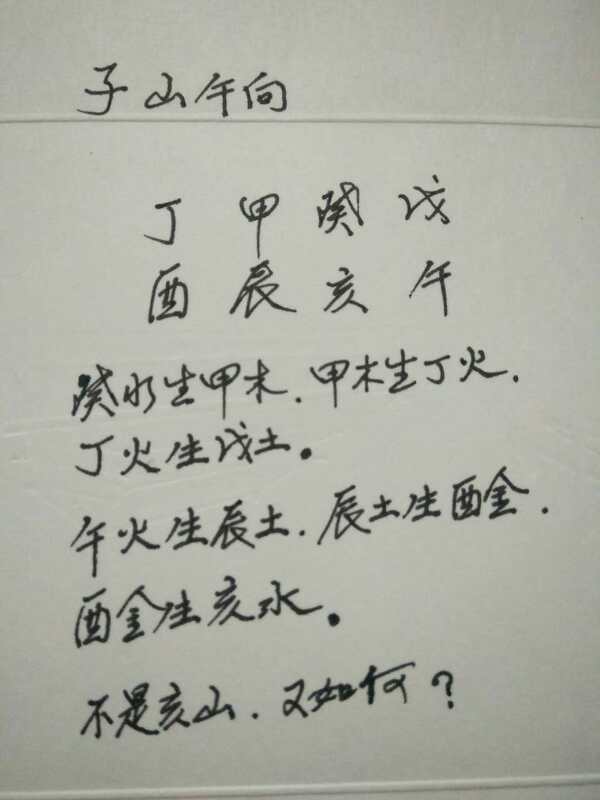 子山午向
丁甲癸戊
酉辰亥午
癸水生甲木.甲木生丁火.
丁火生戊土。
午火生辰土.辰土生酉金.
酉金生亥水。
不是亥山.又如何?